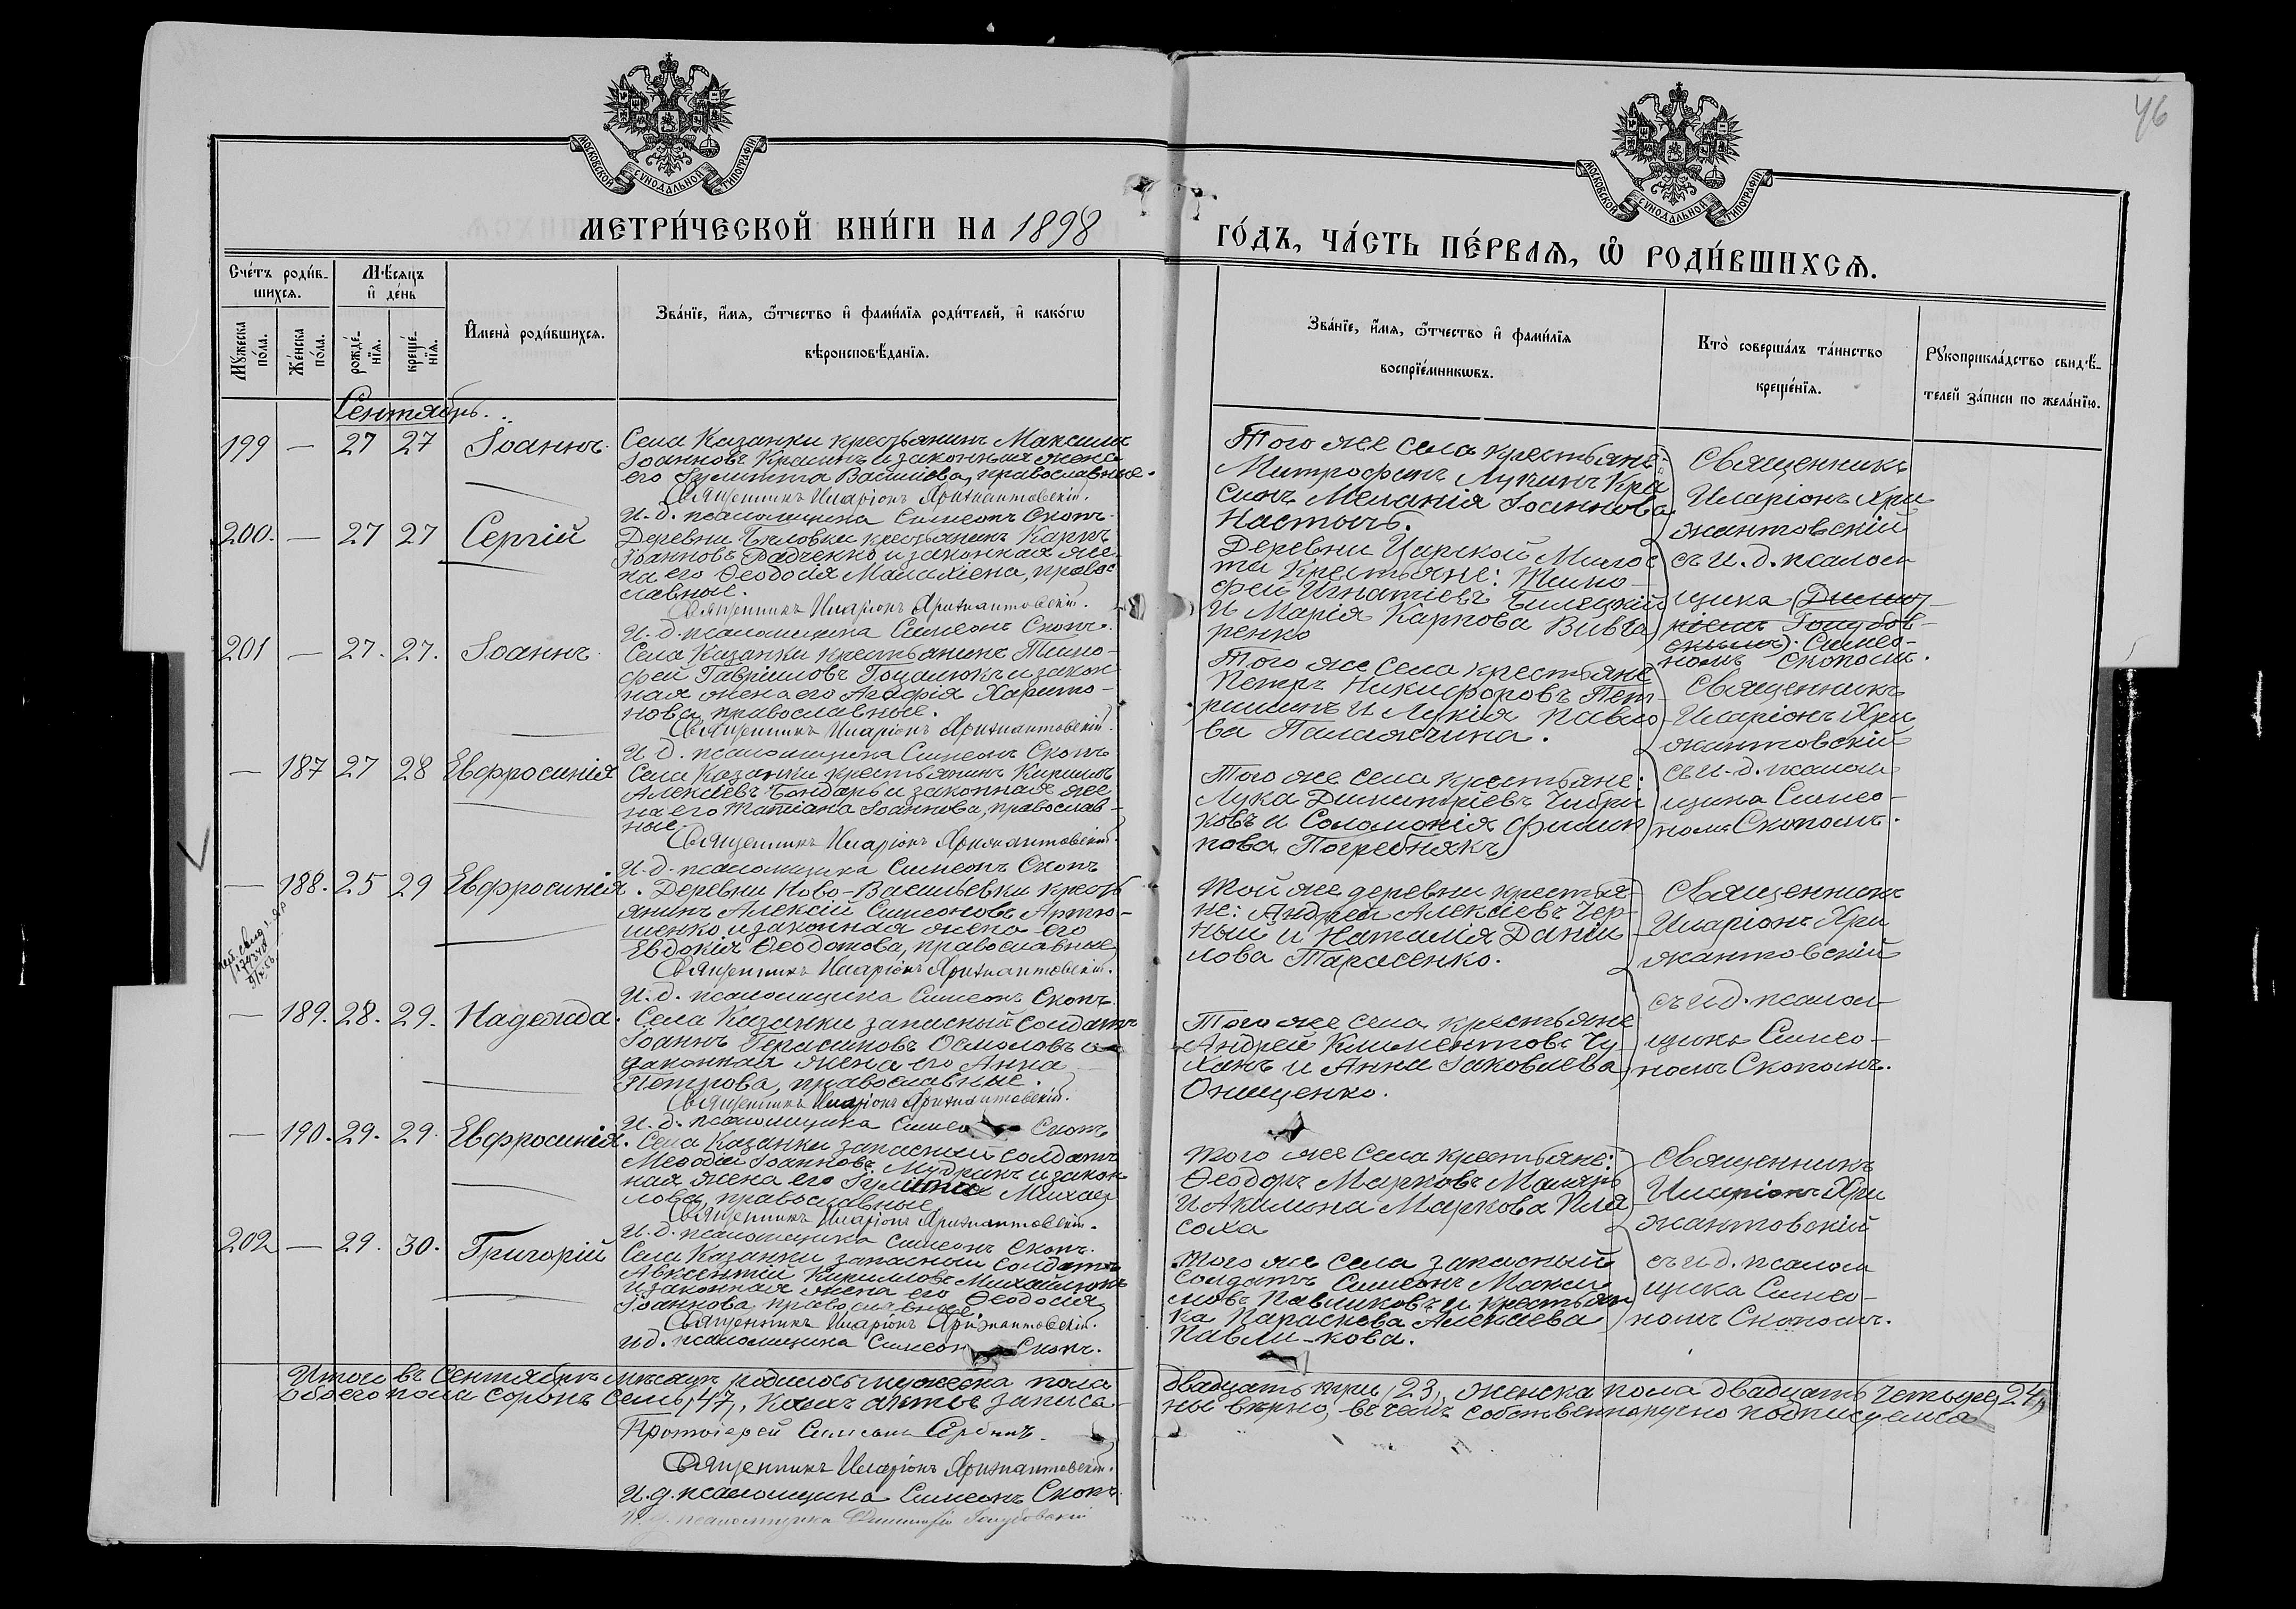 46
МОСКОВСКОЙ СѴНОДАЛЬНОЙ ТИПОГРАФІИ
МОСКОВСКОЙ СѴНОДАЛЬНОЙ ТИПОГРАФІИ
МЕТРИ́ЧЕСКОЙ КНИ́ГИ НА 1898
ГО́ДЪ, ЧА́СТЬ ПЕ́РВАЯ, Ѡ РОДИ́ВШИХСЯ.
Сче́тъ роди́в-
шихся.
Мѣсяцъ
и де́нь
Му́жеска по́ла.
Же́нска по́ла.
рожде́-
нїя.
креще́-
нїя.
Имена̀ роди́вшихся.
Зва́нїе, и́мя, ѻ҆́тчество и фами́лїя роди́телей, и како́гѡ
вѣроисповѣ́данїя.
Зва́нїе, и́мя, ѻ҆́тчество и фами́лїя
воспрїе́мникѡвъ.
Кто̀ соверша́лъ та́инство
креще́нїя.
Рꙋкоприкла́дство свидѣ́-
телей за́писи по жела́нїю.
Сентябрь.
199 — 27 27 Іоаннъ.
Села Казанки крестьянинъ Максимъ
Іоанновъ Красинъ и законная жена
его Іулитта Васильева, православные.
Священникъ Иларіонъ Хрижантовскій.
И. д. псаломщика Симеонъ Скопъ.
Того же села крестьяне:
Митрофанъ Лукинъ Кра
синъ Меланія Іоаннова
Настычъ.
Священникъ
Иларіонъ Хри
жантовскій
съ И. д. псалом
щика (Дими
тріемъ Голубов-
скимъ): Симео-
номъ Скопомъ.
200. — 27 27 Сергій
Деревни Бѣловки крестьянинъ Карпъ
Іоанновъ Радченко и законная же-
на его Ѳеодосія Малахіева, право
славные.
Священникъ Иларіонъ Хрижантовскій.
И. д. псаломщика Симеонъ Скопъ.
Деревни Царской Милос
ти Крестьяне: Тимо-
фей Игнатіевъ Билецкій
и Марія Карпова Вивча
ренко
201 — 27. 27. Іоаннъ.
Села Казанки крестьянинъ Тимо-
фей Гавриловъ Гоцалюкъ и закон-
ная жена его Агафія Харито-
нова, православные.
Священникъ Иларіонъ Хрижантовскій.
И. д. псаломщика Симеонъ Скопъ
Того же села крестьяне
Петръ Никифоровъ Пет-
ришинъ и Лукія Павло
ва Паламчина.
Священникъ
Иларіонъ Хри
жантовскій
съ и. д. псалом
щика Симео-
номъ Скопомъ.
— 187 27 28 Евфросинія
Села Казанки крестьянинъ Кириллъ
Алексіевъ Бондарь и законная же
на его Татіана Іоаннова, православ-
ные.
Священникъ Иларіонъ Хрижантовскій.
И. д. псаломщика Симеонъ Скопъ
Того же села крестьяне:
Лука Димитріевъ Чибри
ковъ и Соломонія Филип
пова Погребнякъ
— 188. 25 29 Евфросинія.
Деревни Ново-Васильевки кресть
янинъ Алексій Симеоновъ Артю-
шенко и законная жена его
Евдокія Ѳеодотова, православные
Священникъ Иларіонъ Хрижантовскій.
И. д. псаломщика Симеонъ Скопъ.
Той же деревни крестья-
не: Андрей Алексіевъ Чер-
ный и Наталія Даніи
лова Тарасенко.
Священникъ
Иларіонъ Хри
жантовскій
съ и д. псалом
щика Симео-
номъ Скопомъ.
— 189. 28. 29. Надежда.
Села Казанки запасный солдатъ
Іоаннъ Герасимовъ Осмоловъ и
законная жена его Анна
Петрова, православные.
Священникъ Иларіонъ Хрижантовскій.
И. д. псаломщика Симео Скопъ
Того же села крестьяне
Андрей Климентовъ Чу-
ханъ и Анна Іаковлева
Онищенко.
— 190. 29. 29. Евфросинія.
Села Казанки запасный солдатъ
Меѳодій Іоанновъ Мудракъ и закон
ная жена его Іулитта Михаи
лова, православные
Священникъ Иларіонъ Хрижантовскій.
И. д. псаломщика Симеонъ Скопъ.
Того же села крестьяне:
Ѳеодоръ Марковъ
и Акилина Маркова Пля
соха
Священникъ
Иларіонъ Хри
жантовскій
съ и д. псалом
щика Симео-
номъ Скопомъ.
202 — 29. 30. Григорій
Села Казанки запасный солдатъ
Авксентій Кирилловъ
и законная жена его Ѳеодосія
Іоаннова, православные.
Священникъ Иларіонъ Хрижантовскій.
ид. псаломщика Симеон Скопъ.
Того же села запасный
солдатъ Симеонъ Макси
мовъ Павликовъ и крестьян
ка Параскева Алексіева
Павли-кова.
Итого въ Сентябрѣ мѣсяцѣ родилось мужеска пола
двадцать три, 23, женска пола двадцать четыре, 24,
обоего пола сорокъ семь, 47, Коихъ актъ записа-
ны вѣрно, въ чемъ собственноручно подписуемся
Протоіерей Симеонъ Сербинъ.
Священникъ Иларіонъ Хрижантовскій.
И. д. псаломщика Симеонъ Скопъ.
И. д. псаломщика Димитрій Голубовскій